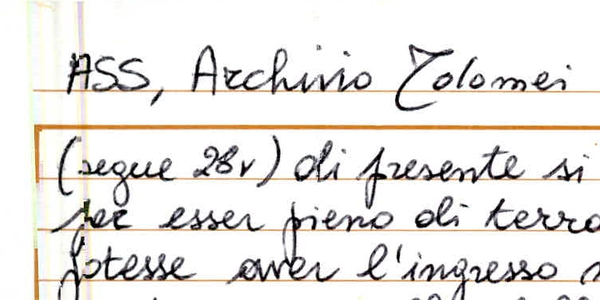 ASS, Archivio Tolomei
(segue 28v) di presente si
per esser pieno di terra
potesse aver l'ingresso